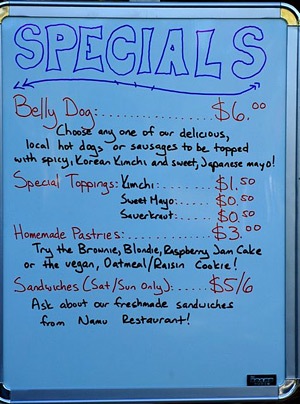 SPECIALS
Belly Dog:..............$6.00
Choose any one of our delicious,
local hot dogs or sausages to be topped
with spicy, Korean Kimchi and sweet, Japanese mayo!
Special Toppings: Kimchi:........$1.50
Sweet Mayo:.....$0.50
Sauerkraut:.....$0.50
Homemade Pastries:............$3.00
Try the Brownie, Blondie, Raspberry Jam Cake
or the vegan, Oatmeal/Raisin Cookie!
Sandwiches (Sat/Sun Only):.....$5/6
Ask about our freshmade sandwiches
from Namu Restaurant!